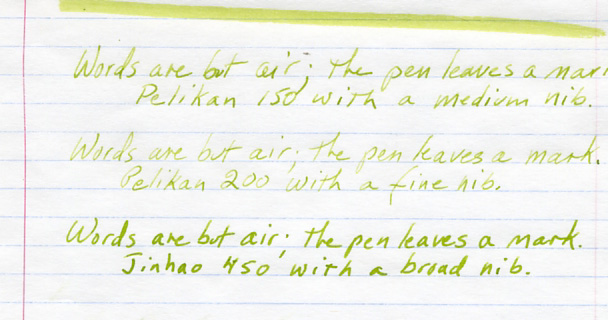 Words are but air; the pen leaves a mar
Pelikan 150 with a medium nib.
Words are but air; the pen leaves a mark.
Pelikan 200 with a fine nib.
Words are but air; the pen leaves a mark.
Jinhao 450 with a broad nib.